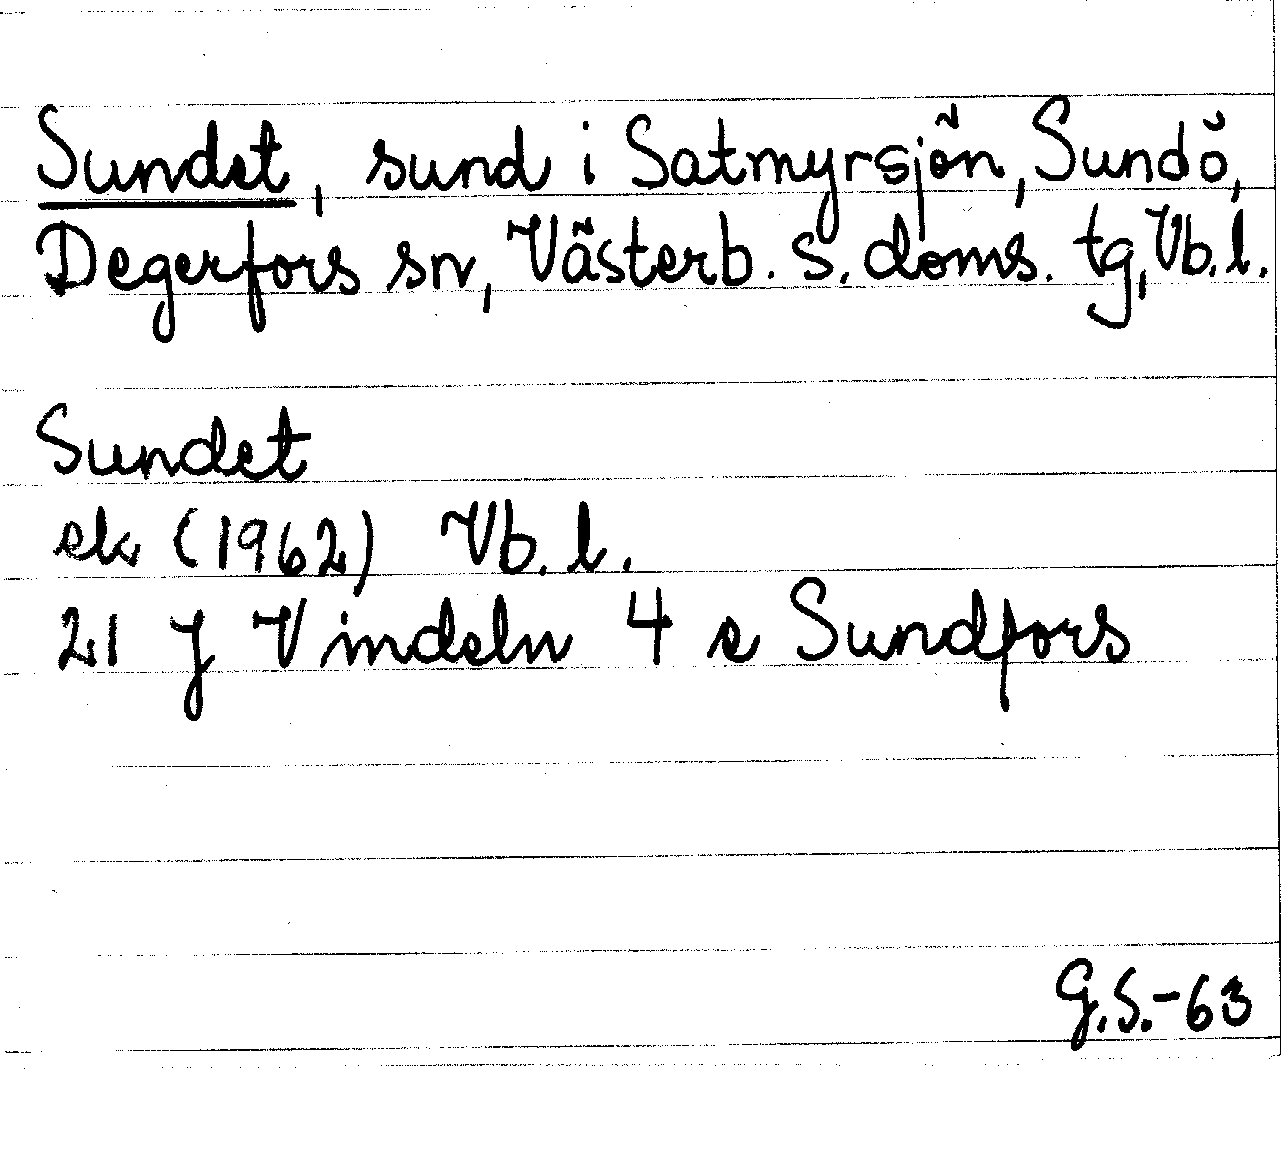 Sundet, sund i Satmyrsjön, Sundö,
Degerfors sn, Västerb. s. doms. tg, Vb. l.
Sundet
ek (1962) Vb. l.
21 J Vindeln 4 e Sundfors
G.S.-63